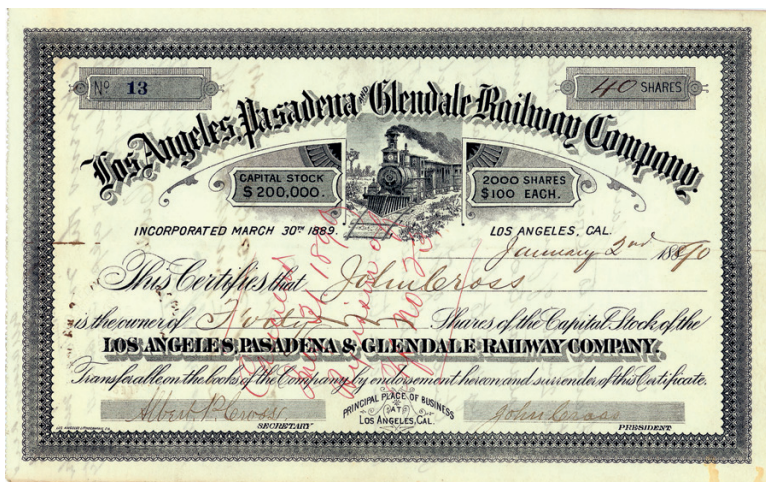 Nº 13
40 SHARES
Los Angeles, Pasadena AND Glendale Railway Company.
CAPITAL STOCK
$200,000.
2000 SHARES
$100 EACH.
INCORPORATED MARCH 30TH 1889.
LOS ANGELES, CAL.
January 2nd 1890
This Certifies that John Cross
is the owner of Forty Shares of the Capital Stock of the
LOS ANGELES, PASADENA & GLENDALE RAILWAY COMPANY.
Transferable on the books of the Company by endorsement hereon and surrender of this Certificate.
Albert P. Cross
SECRETARY
PRINCIPAL PLACE OF BUSINESS
AT
LOS ANGELES, CAL.
John Cross
PRESIDENT